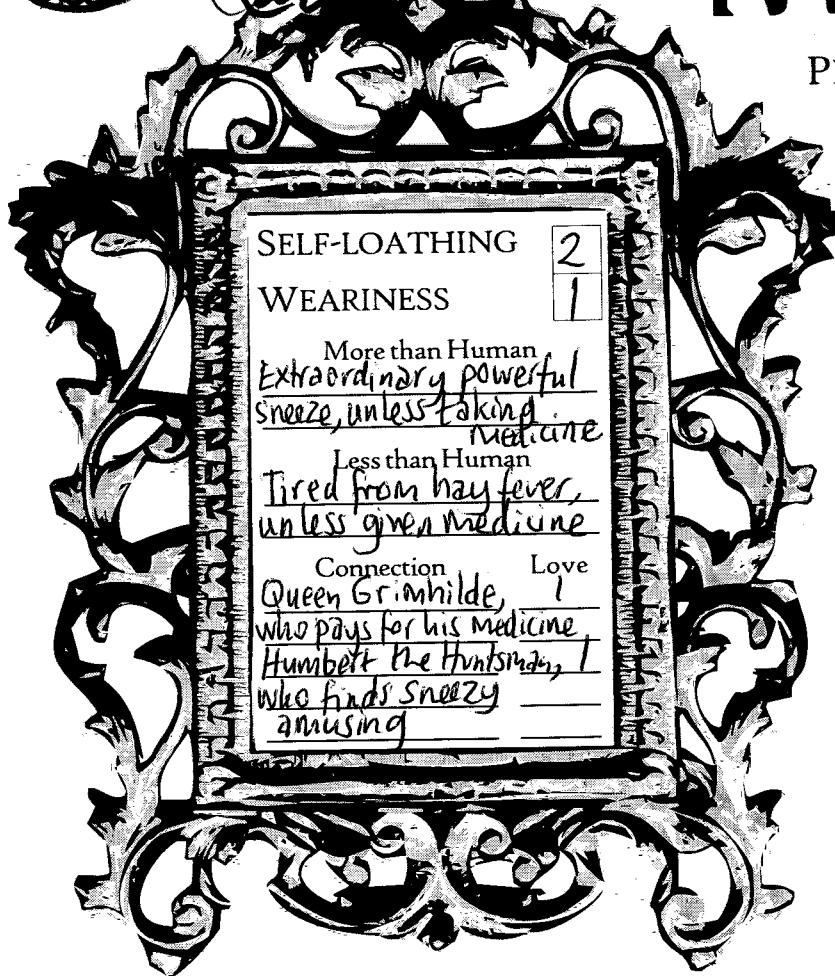 PI
SELF-LOATHING 2
WEARINESS 1
More than Human
Extraordinary powerful
sneeze, unless taking
medicine
Less than Human
Tired from hay fever,
unless given medicine
Connection Love
Queen Grimhilde, 1
who pays for his medicine
Humbert the Huntsman, 1
who finds Sneezy
amusing